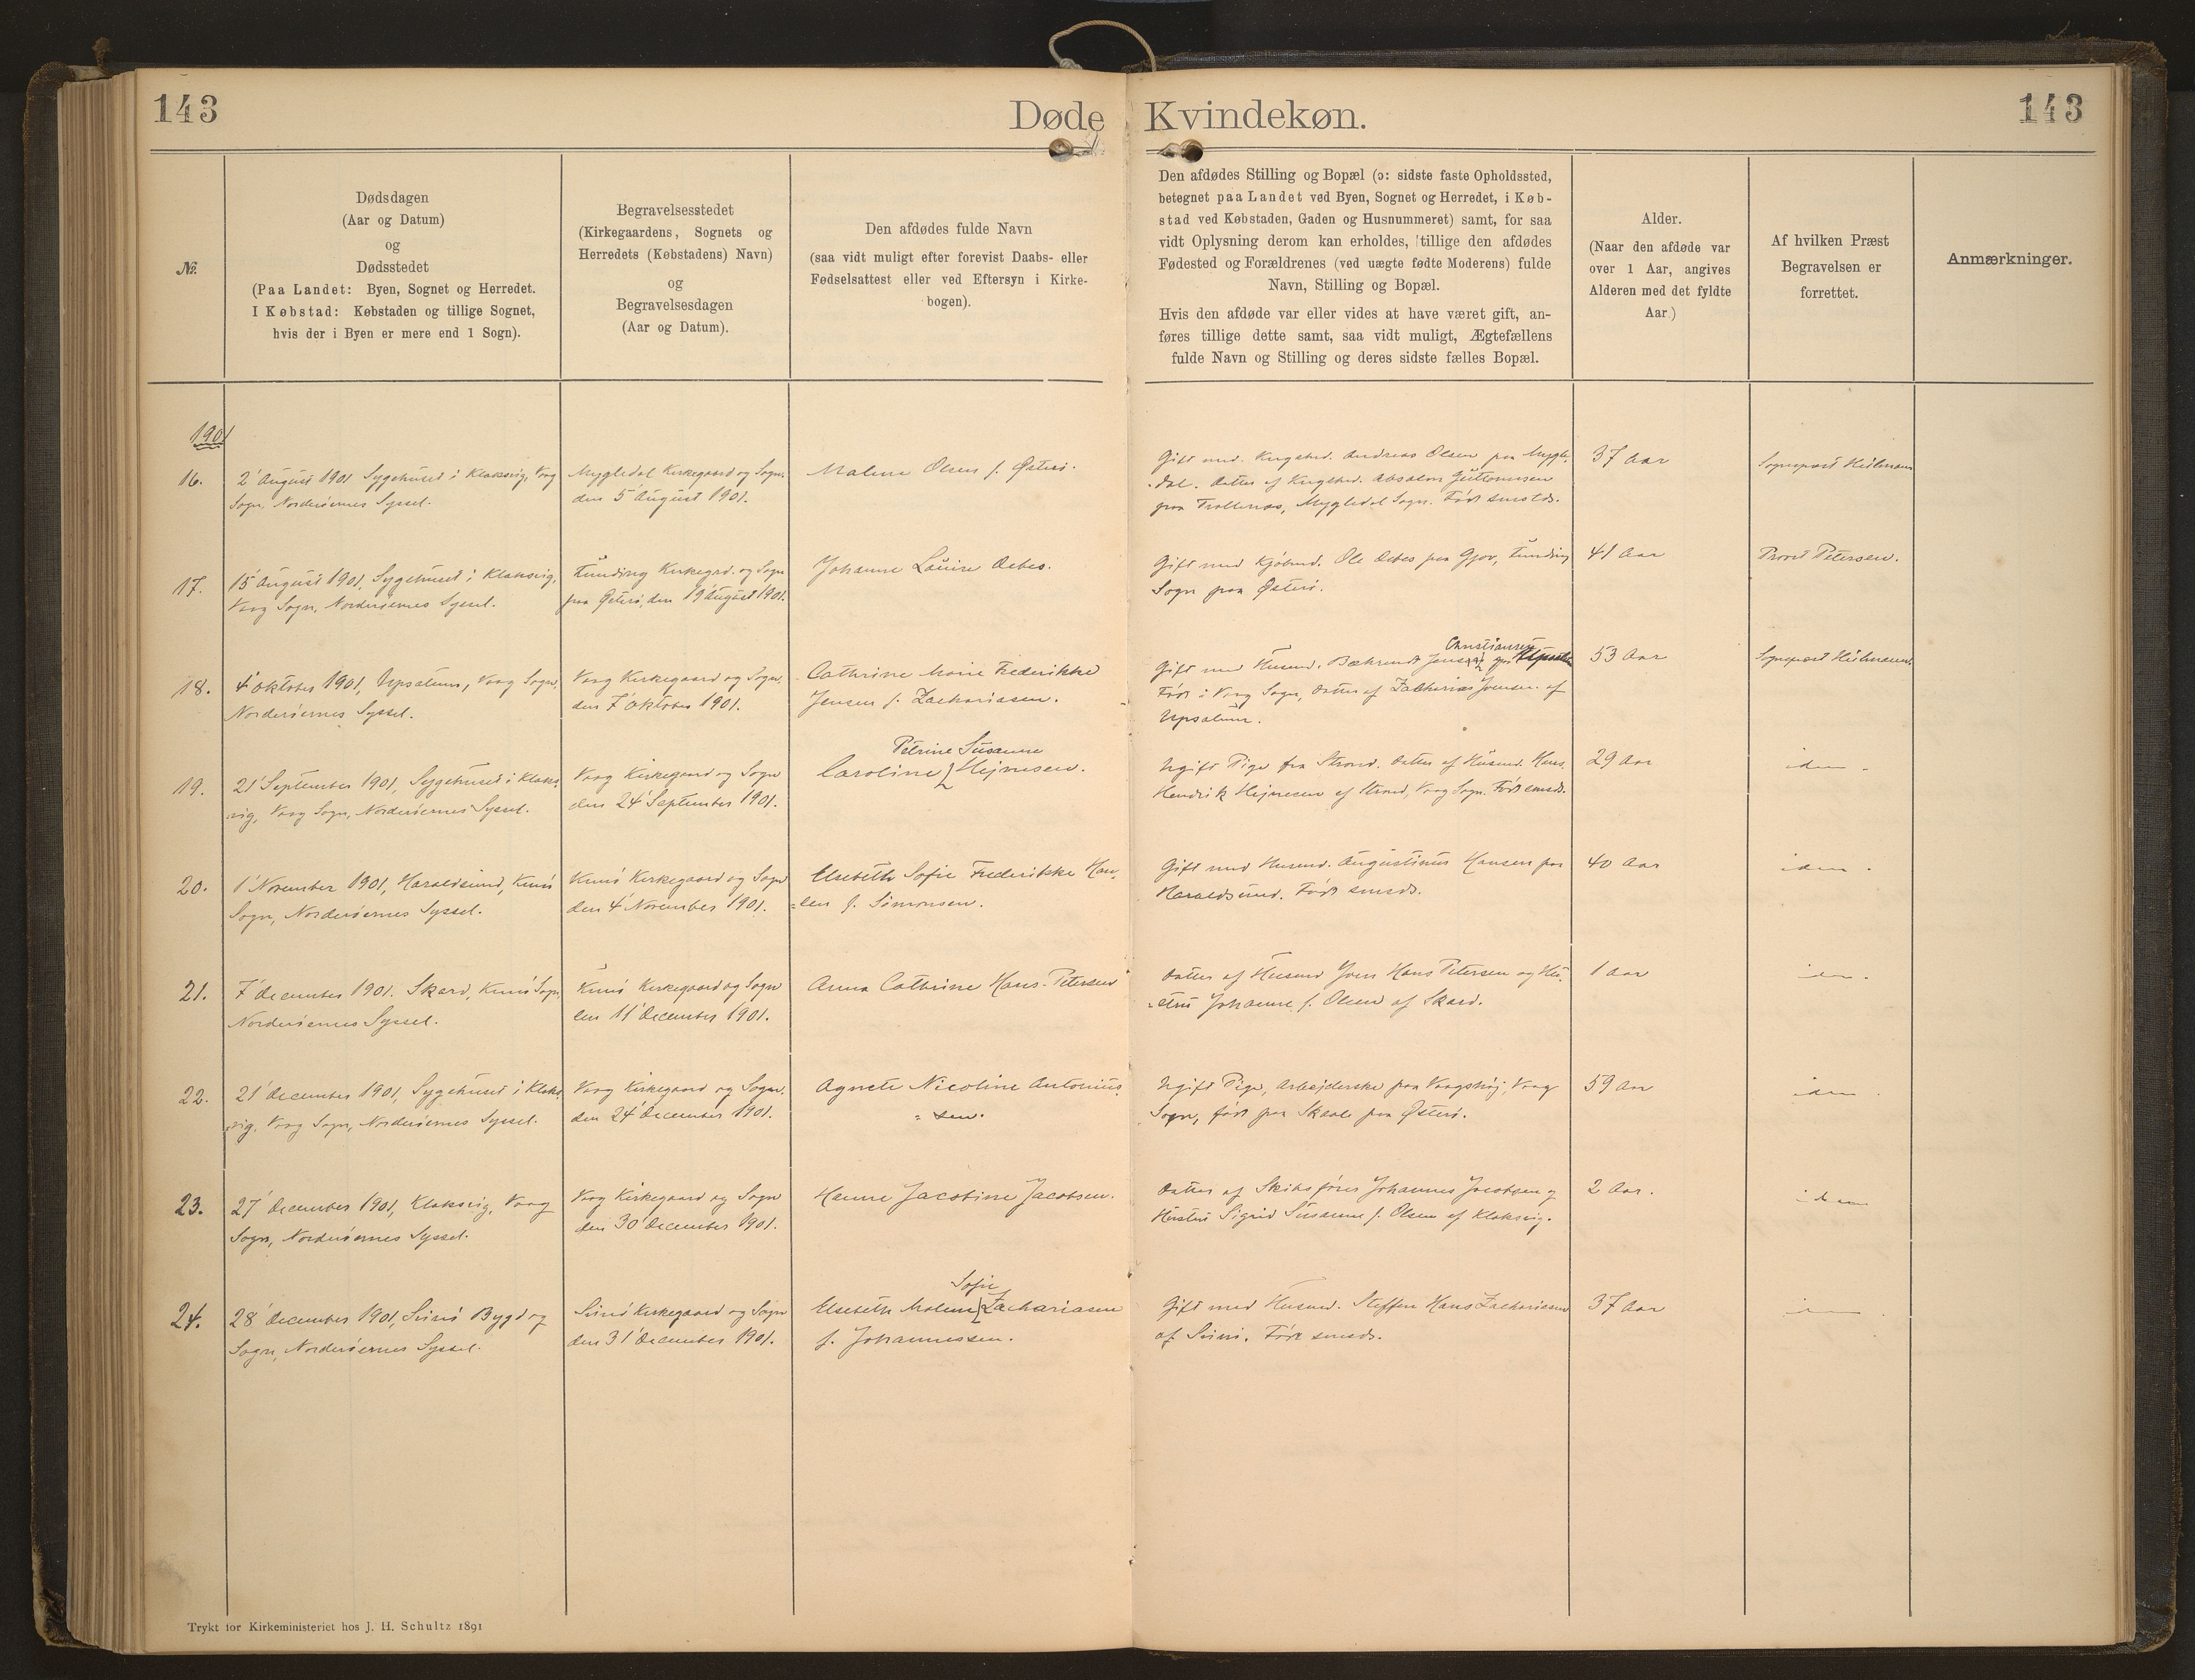 143
Døde
Kvindekøn.
143
№.
Dødsdagen
(Aar og Datum)
og
Dødsstedet
(Paa Landet: Byen, Sognet og Herredet.
I Købstad: Købstaden og tillige Sognet,
hvis der i Byen er mere end 1 Sogn).
Begravelsesstedet
(Kirkegaardens, Sognets og
Herredets (Købstadens) Navn)
og
Begravelsesdagen
(Aar og Datum).
Den afdødes fulde Navn
(saa vidt muligt efter forevist Daabs- eller
Fødselsattest eller ved Eftersyn i Kirke-
bogen).
Den afdødes Stilling og Bopæl (ɔ: sidste faste Opholdssted,
betegnet paa Landet ved Byen, Sognet og Herredet, i Køb-
stad ved Købstaden, Gaden og Husnummeret) samt, for saa
vidt Oplysning derom kan erholdes, tillige den afdødes
Fødested og Forældrenes (ved uægte fødte Moderens) fulde
Navn, Stilling og Bopæl.
Hvis den afdøde var eller vides at have været gift, an-
føres tillige dette samt, saa vidt muligt, Ægtefællens
fulde Navn og Stilling og deres sidste fælles Bopæl.
Alder.
(Naar den afdøde var
over 1 Aar, angives
Alderen med det fyldte
Aar.)
Af hvilken Præst
Begravelsen er
forrettet.
Anmærkninger.
1901
16.
2' August 1901 Sygehuset i Klaksvig, Vaag
Sogn, Norderøernes Syssel.
Mygledal Kirkegaard og Sogn.
den 5' August 1901.
Malene Olsen f. Østerø.
Gift med Kngsbd. Andreas Olsen paa Mygle-
dal. Datter af Kngsbd. Absalon Guttormsen
paa Trollenæs, Mygledal Sogn. Født smstds.
37 Aar
Sognepræst Heilmann
17.
15' August 1901, Sygehuset i Klaksvig,
Vaag Sogn, Norderøernes Syssel.
Funding Kirkegrd. og Sogn
paa Østerø, den 19' August 1901.
Johanne Louise Debes.
Gift med Kjøbmd. Ole Debes paa Gjov, Funding
Sogn paa Østerø.
41 Aar
Provst Petersen.
18.
4' Oktober 1901, Upsalum, Vaag Sogn,
Norderøernes Syssel.
Vaag Kirkegaard og Sogn.
den 7' Oktober 1901.
Cathrine Marie Frederikke
Jensen f. Zachariasen.
Christiansen
Gift med Husmd. Bæhrendt Jensen
Født i Vaag Sogn, Datter af Zacharias Joensen af
Upsalum.
53 Aar
Sognepræst Heilmann.
19.
21' September 1901, Sygehuset i Klaks-
vig, Vaag Sogn, Norderøernes Syssel.
Vaag Kirkegaard og Sogn
den 24' September 1901.
Petrine Susanne
Caroline Hejnesen.
Ugift Pige fra Strond. Datter af Husmd. Hans
Hendrik Hejnesen af Strond, Vaag Sogn. Født smsds.
29 Aar
idem.
20.
1' November 1901, Haraldsund, Kunø
Sogn, Norderøernes Syssel.
Kunø Kirkegaard og Sogn
den 4' November 1901.
Elsebeth Sofie Frederikke Han-
sen f. Simonsen.
Gift med Husmd. Augustinus Hansen paa
Haraldsund. Født smsds.
40 Aar
idem.
21.
7' December 1901. Skard, Kunø Sogn,
Norderøernes Syssel.
Kunø Kirkegaard og Sogn
den 11' December 1901.
Anna Cathrine Hans-Petersen
Datter af Husmd Joen Hans Petersen og Hu-
stru Johanne f. Olsen af Skard.
1 Aar
idem.
22.
21' December 1901, Sygehuset i Klaks-
vig, Vaag Sogn, Norderøernes Syssel.
Vaag Kirkegaard og Sogn.
den 24' December 1901.
Agnete Nicoline Antonius-
sen.
Ugift Pige, Arbejderske paa Vaagshøj, Vaag
Sogn, født paa Skaale paa Østerø.
59 Aar
idem.
23.
27' December 1901, Klaksvig, Vaag
Sogn, Norderøernes Syssel.
Vaag Kirkegaard og Sogn
den 30' December 1901.
Hanne Jacobine Jacobsen.
Datter af Skibsfører Johannes Jacobsen og
Hustru Sigrid Susanne f. Olsen af Klaksvig.
2 Aar.
idem
24.
28' December 1901, Svinø Bygd og
Sogn, Norderøernes Syssel.
Svinø Kirkegaard og Sogn
den 31' December 1901.
Sofie
Elsebeth Malene Zachariasen
f. Johannessen.
Gift med Husmd. Steffen Hans Zachariasen
af Svinø. Født smsds.
37 Aar
idem.
Trykt for Kirkeministeriet hos J. H. Schultz 1891